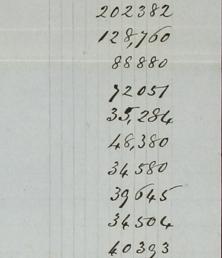 202382
128,760
88880
72051
35,284
48,380
34580
39645
34504
40393